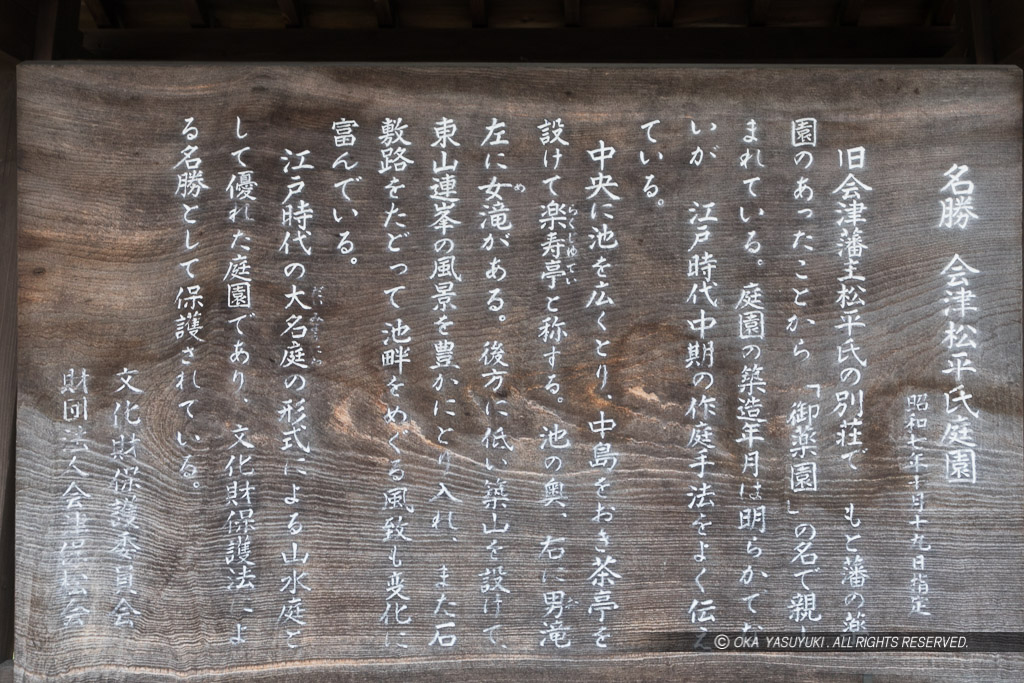 名勝　会津松平氏庭園
昭和七年十月十九日指定
旧会津藩主松平氏の別荘で　もと藩の薬
園のあったことから「御薬園」の名で親し
まれている。庭園の築造年月は明らかでな
いが　江戸時代中期の作庭手法をよく伝え
ている。
中央に池を広くとり、中島をおき茶亭を
設けて楽寿亭と称する。池の奥、右に男滝
らくじゅてい
左に女滝がある。後方に低い築山を設けて、
め
東山連峯の風景を豊かにとり入れ、また石
敷路をたどって池畔をめぐる風致も変化に
富んでいる。
江戸時代の大名庭の形式による山水庭と
して優れた庭園であり、文化財保護法によ
る名勝として保護されている。
文化財保護委員会
財団法人会津保松会
© OKA YASUYUKI . ALL RIGHTS RESERVED.